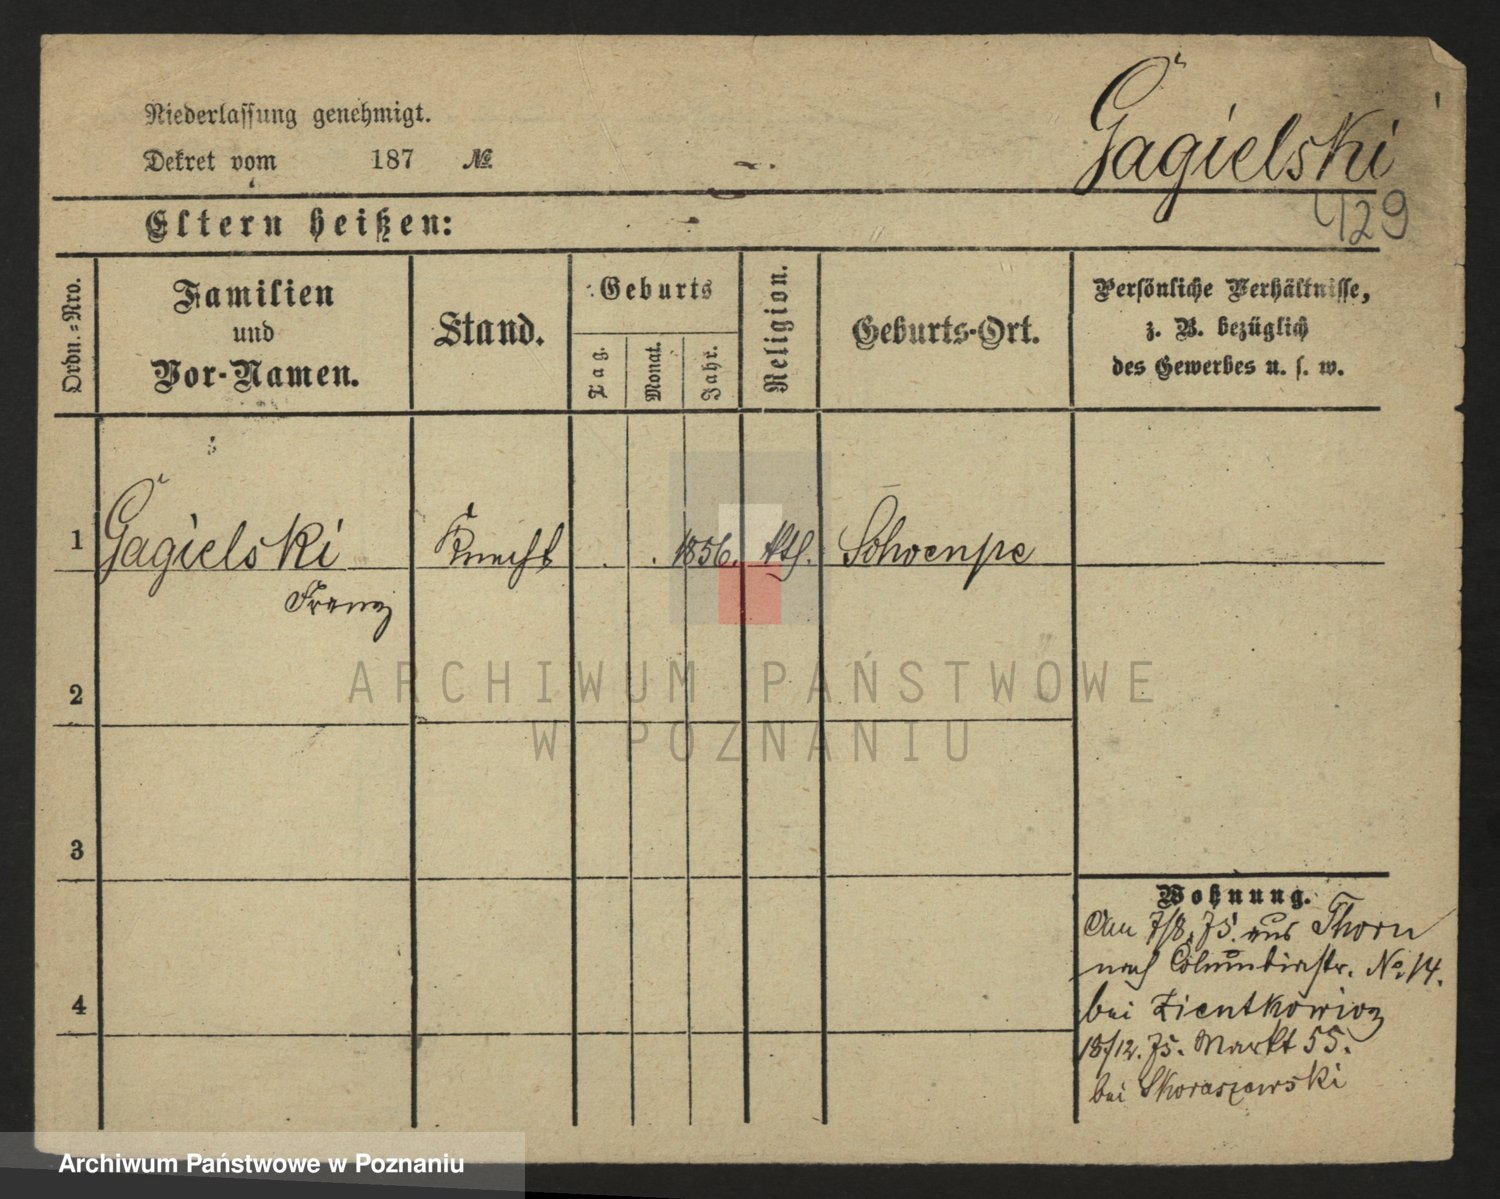 Niederlassung genehmigt.
Dekret vom 187 №
Gągielski
429
Eltern heißen:
Ordn.-Nro.
Familien
und
Vor-Namen.
Stand.
Geburts
Tag.
Monat.
Jahr.
Religion.
Geburts-Ort.
Persönliche Verhältnisse,
z. B. bezüglich
des Gewerbes u. s. w.
1 Gągielski Knecht 1856. kth. Schoenpe
Franz
2
3
4
ARCHIWUM PAŃSTWOWE
W POZNANIU
Wohnung.
Am 7/8. 75. aus Thorn
nach Columbiastr. No 14.
bei Zientkowicz
18/12. 75. Markt 55.
bei Skoraszewski
Archiwum Państwowe w Poznaniu